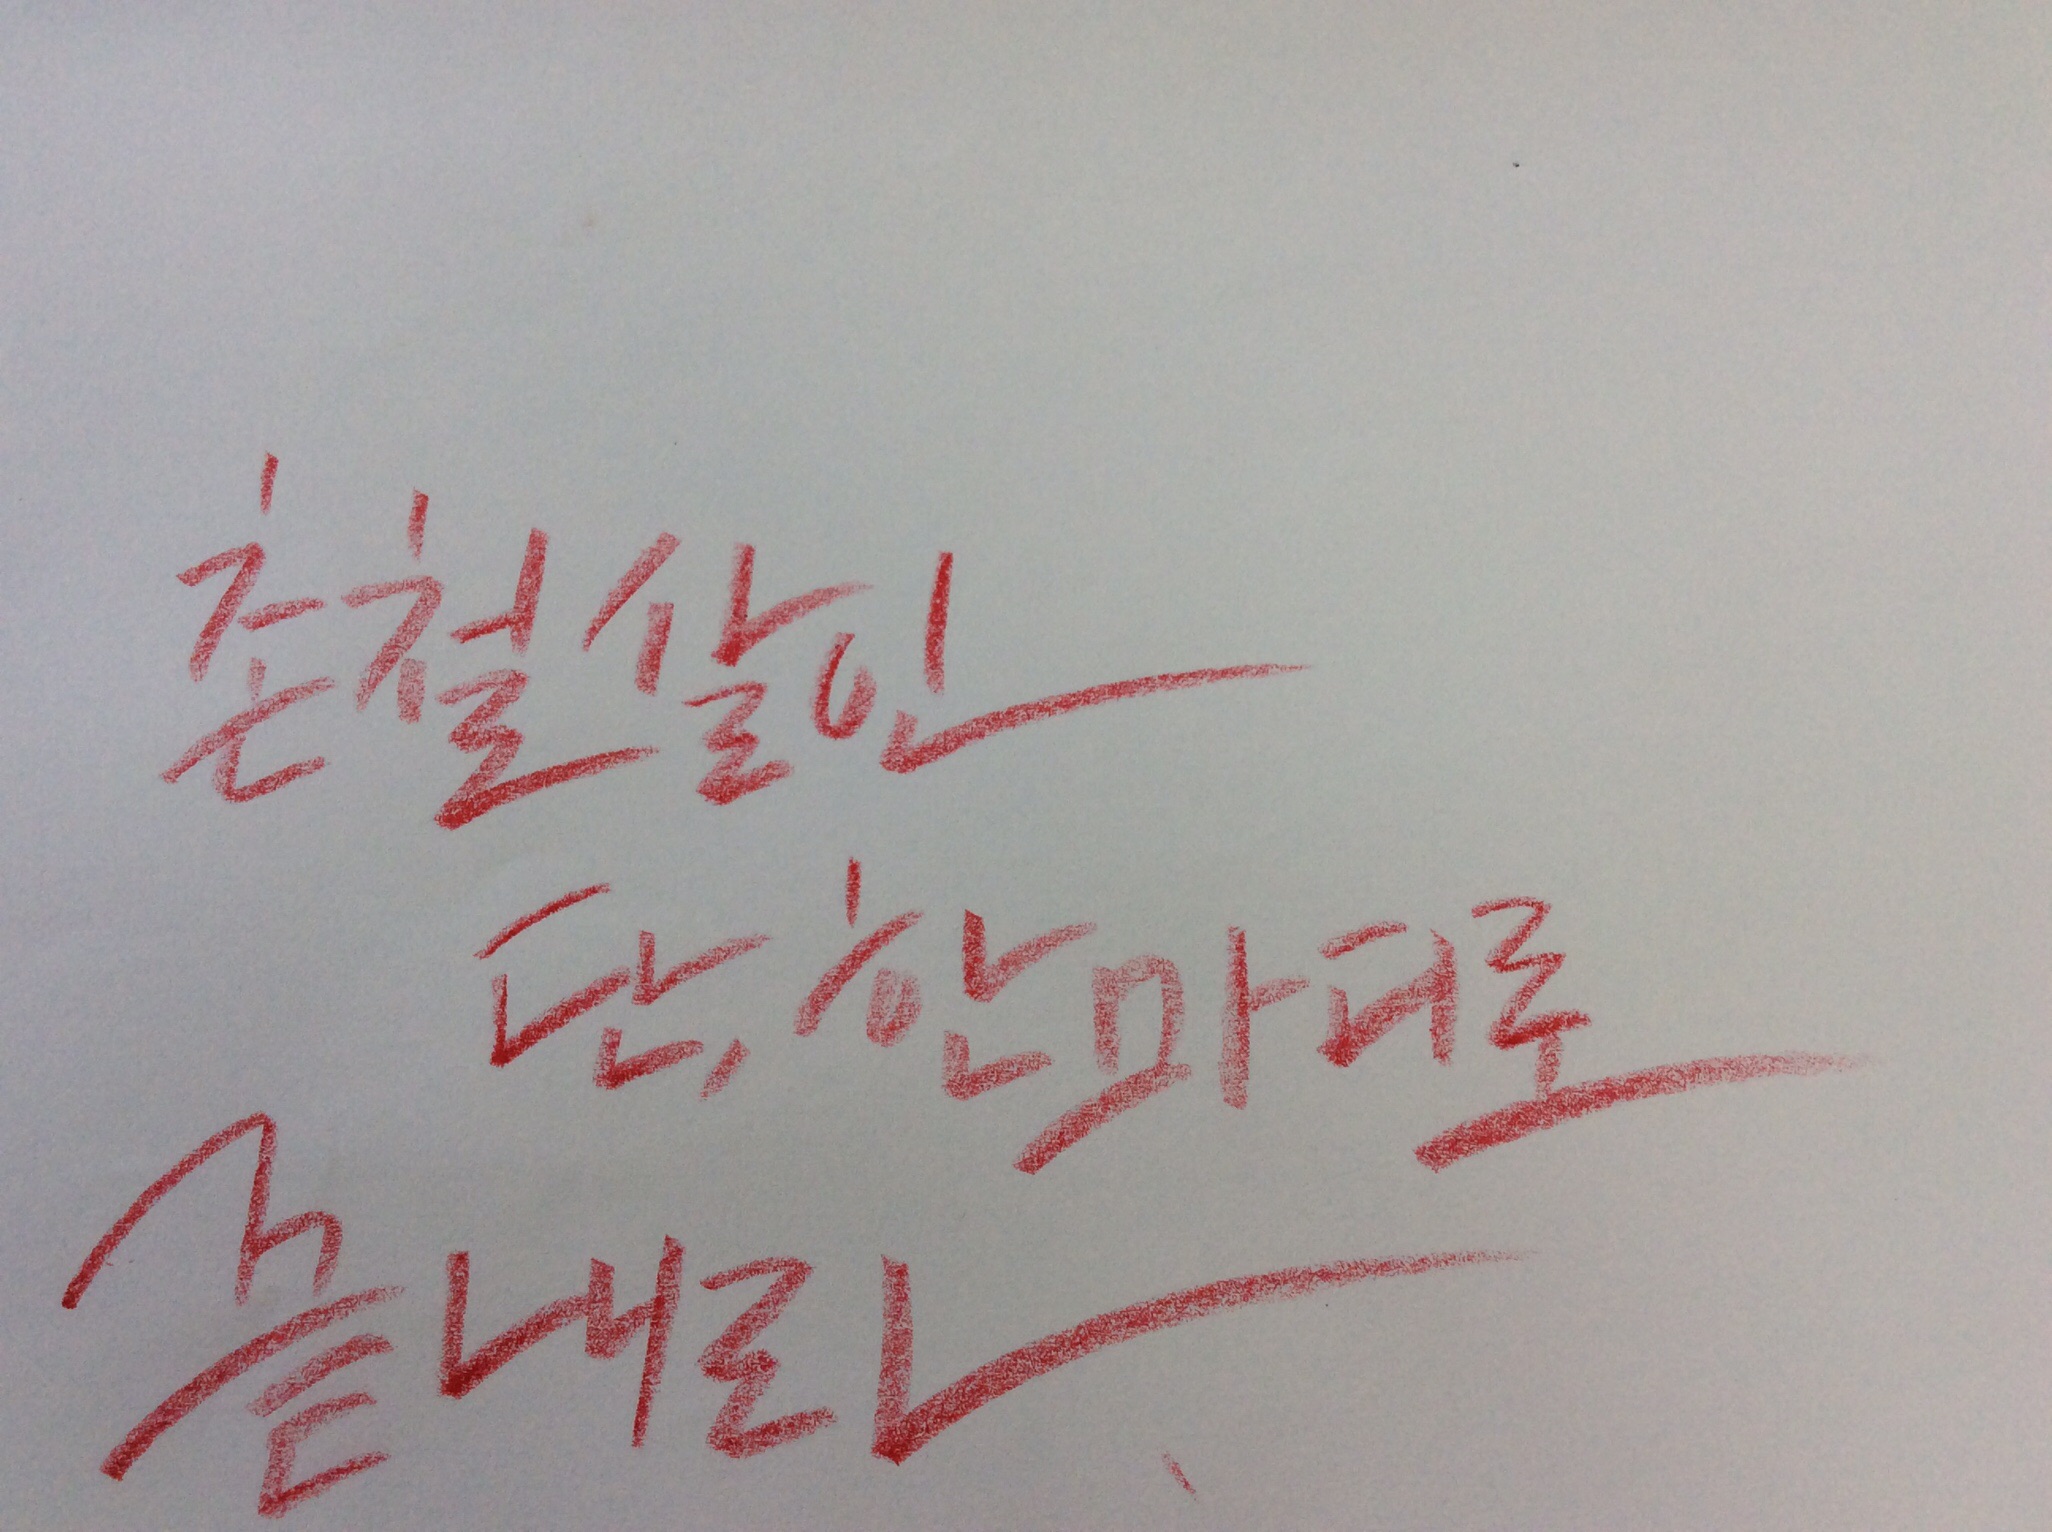 촌철살인
단, 한마디로
끝내라